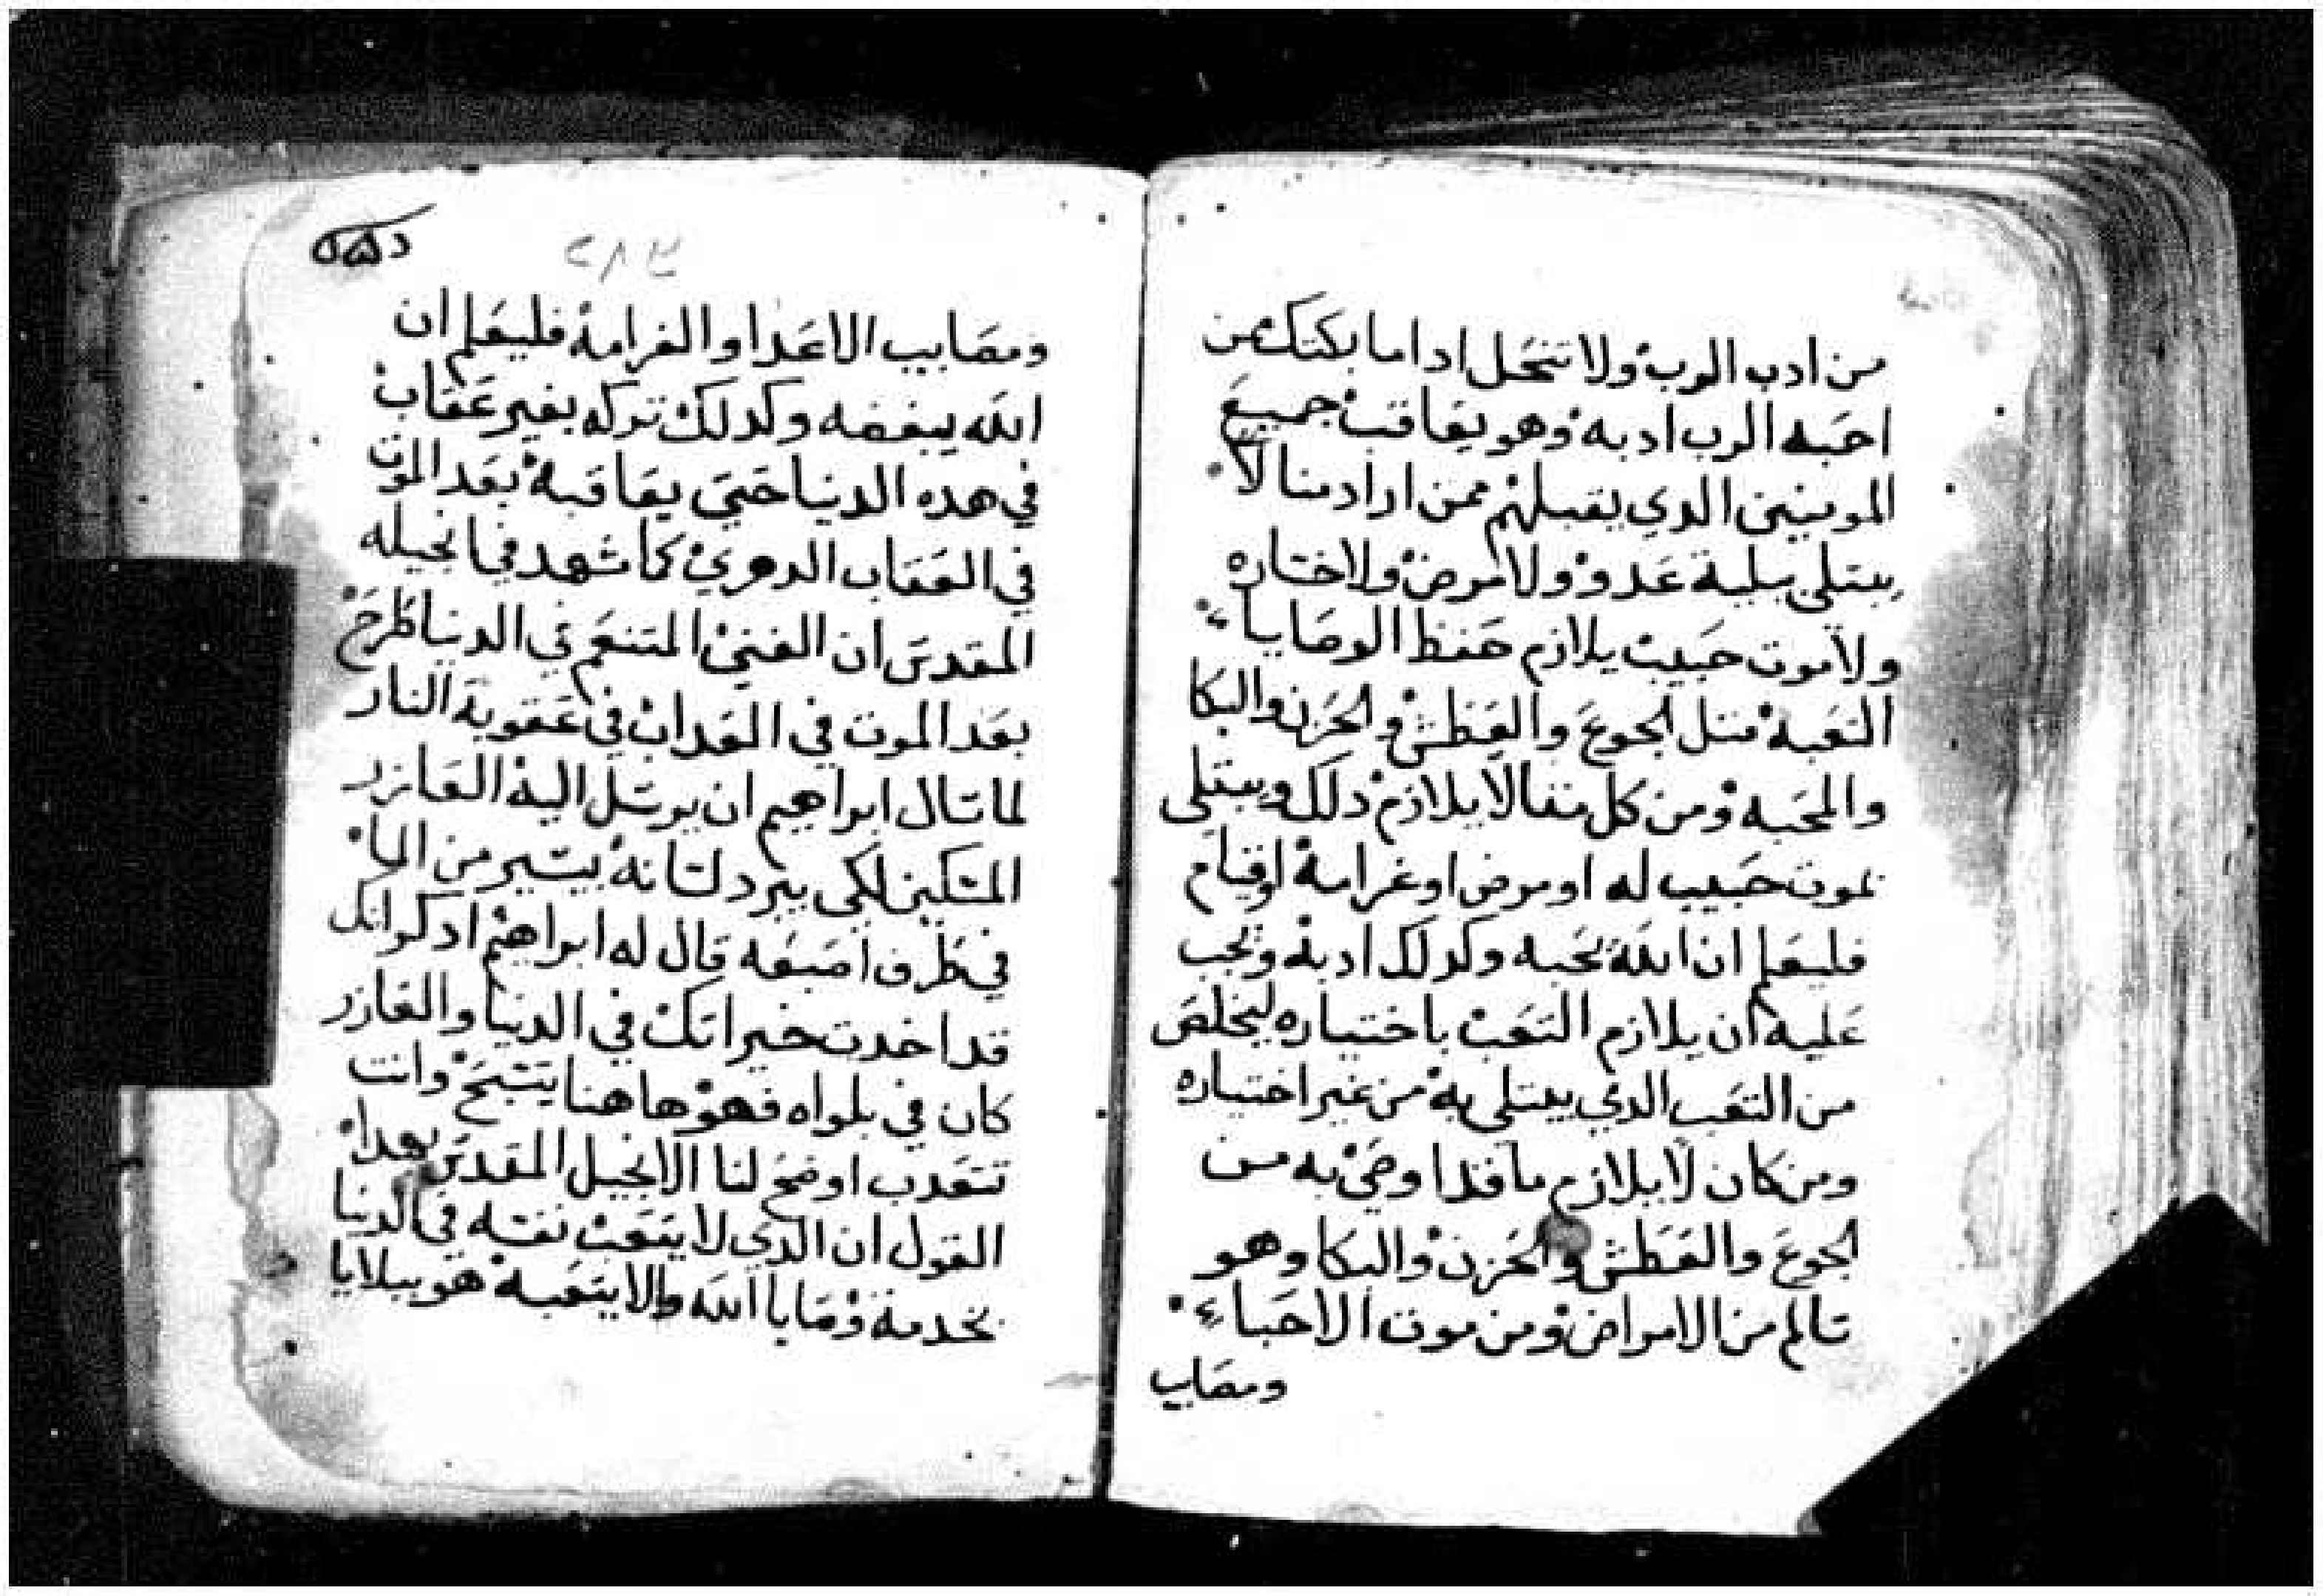 من ادب الرب ولا تنحل ادا ما بكتك من
احبه الرب ادبه وهو يعاقب جميع
المومنين الدي يقبلهم ممن اراد منا لا
يبتلي ببلية عدو ولا مرض ولا خساره
ولا موت حبيب يلازم حفظ الوصايا
التعبه متل الجوع والعطش والحزن والبكا
والمحبه ومن كل منا لا يلازم دلك ويبتلي
بموت حبيب له او مرض او غرامة او قيام
فليعلم ان الله يحبه وكدلك ادبه ويجب
عليه ان يلازم التعب باختياره ليخلص
من التعب الدي يبتلي به من غير اختياره
ومن كان لا يلازم ما قد اوصي به من
الجوع والعطش والحزن والبكا وهو
سالم من الامراض ومن موت الاحباء
ومصايب
٢٨٣
ومصايب الاعدا والغرامة فليعلم ان
الله يبغضه وكدلك تركه بغير عقاب
في هده الدنيا حتي يعاقبه بعد الموت
في العقاب الدهري كما شهد في انجيله
المقدس ان الغني المتنعم في الدنيا طرح
بعد الموت في العداب في عقوبة النار
لما سال ابراهيم ان يرسل اليه العازر
المسكين لكي يبرد لسانه بيسير من الماء
في طرف اصبعه قال له ابراهيم ادكر انك
قد اخدت خيراتك في الدنيا والعازر
كان في بلواه فهو هاهنا يتنيح وانت
تتعدب اوضح لنا الانجيل المقدس بهدا
القول ان الدي لا يتعب نفسه في الدنيا
بخدمة وصايا الله والا يتعبه هو ببلايا